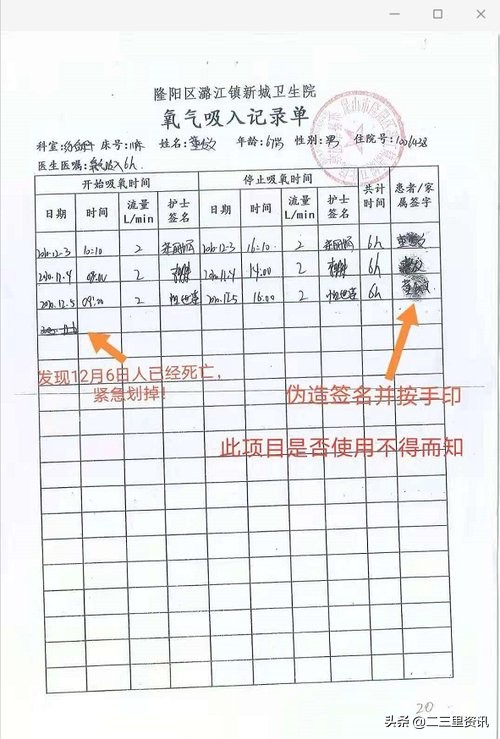 隆阳区潞江镇新城卫生院
氧气吸入记录单
科室: 床号: 姓名: 年龄:67岁 性别:男 住院号:1006438
医生医嘱:氧气吸入6h
开始吸氧时间 停止吸氧时间 共计时间 患者/家属签字
日期 时间 流量L/min 护士签名 日期 时间 流量L/min 护士签名
2020.12.3 10:10 2 2020.12.3 16:10 2 6h
2020.12.4 08:00 2 2020.12.4 14:00 2 6h
2020.12.5 2 2020.12.5 16:00 2 6h
发现12月6日人已经死亡,
紧急划掉!
伪造签名并按手印
此项目是否使用不得而知
20
头条 @二三里资讯